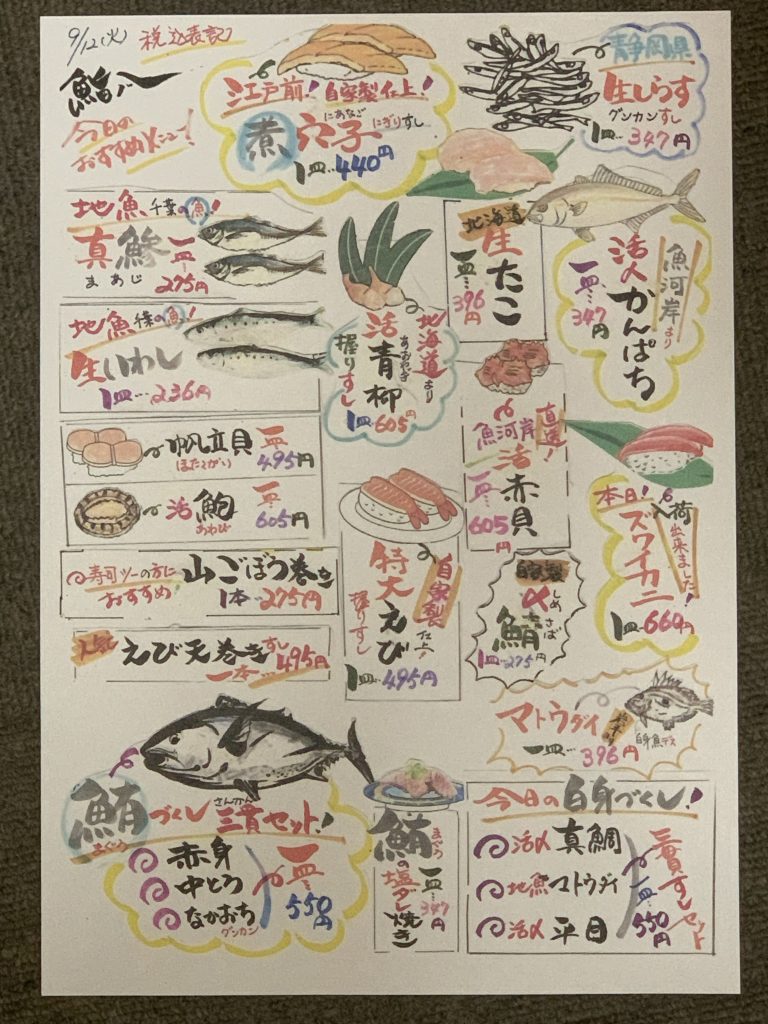 9/12(火) 税込表記
鮨八
今日の
おすすめメニュー!
江戸前!自家製仕上!
煮穴子 にぎりすし
にあなご
1皿…440円
静岡県
生しらす
グンカンすし
1皿…347円
地魚 千葉の魚!
真鯵 一皿…275円
まあじ
地魚 千葉の魚!
生いわし
1皿…236円
北海道より
活青柳
あおやぎ
握りすし
1皿…605円
北海道
生たこ
一皿…396円
魚河岸より
活〆かんぱち
一皿…347円
帆立貝 一皿…495円
ほたてがい
活鮑 一皿…605円
あわび
寿司ツーの方に
おすすめ!
山ごぼう巻き
1本…275円
人気
えび天巻きすし
一本…495円
自家製仕上!
特大えび
握りすし
1皿…495円
直送!
魚河岸
活赤貝
一皿…605円
自家製
〆鯖
しめさば
1皿…275円
本日!入荷出来ました!
ズワイカニ
1皿…660円
マトウダイ
白身魚デス
一皿…396円
鮪づくし三貫セット!
まぐろ さんかん
赤身
中とろ
なかおち
グンカン
一皿…550円
鮪の塩ダレ焼き
まぐろ
一皿…347円
今日の白身づくし!
活〆 真鯛
地魚 マトウダイ
活〆 平目
三貫すしセット
一皿…550円